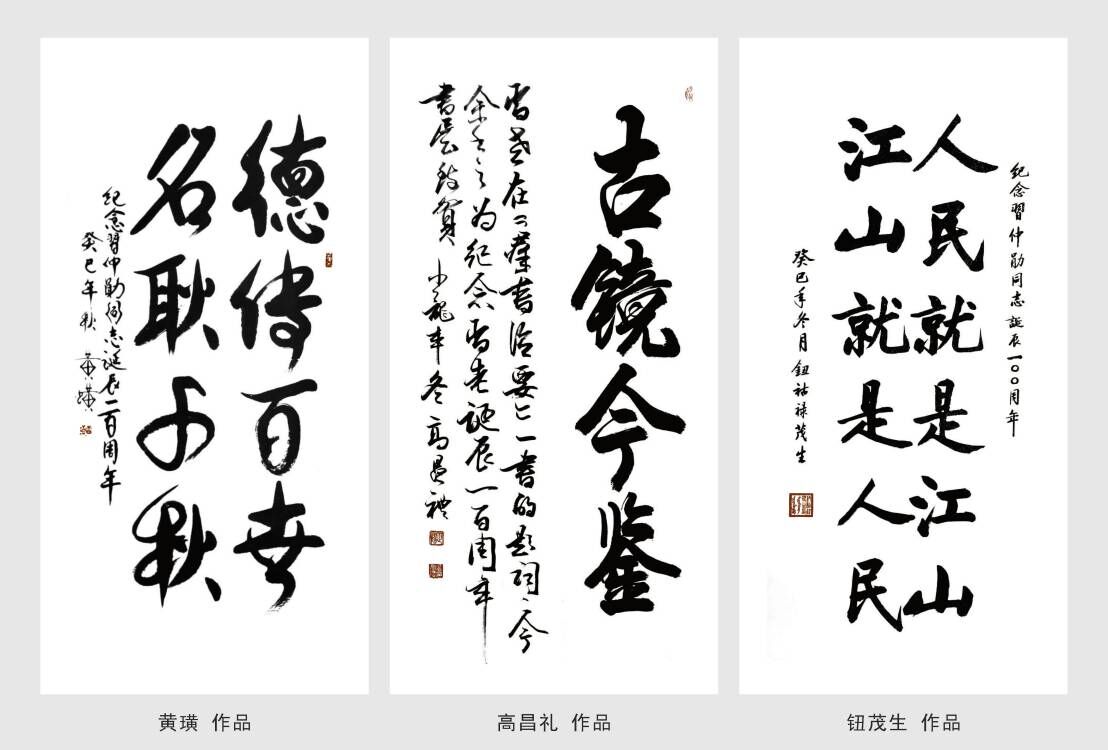 德传百世
名耿千秋
纪念習仲勋同志誕辰一百周年
癸巳年秋 黄璜
古镜今鉴
習老在《群书治要》一書的题詞,今
余书之为纪念習老誕辰一百周年
書展致賀 小龍年冬 高昌禮
纪念習仲勋同志誕辰一〇〇周年
人民就是江山
江山就是人民
癸巳年冬月 鈕祜禄茂生
黄璜 作品
高昌礼 作品
钮茂生 作品